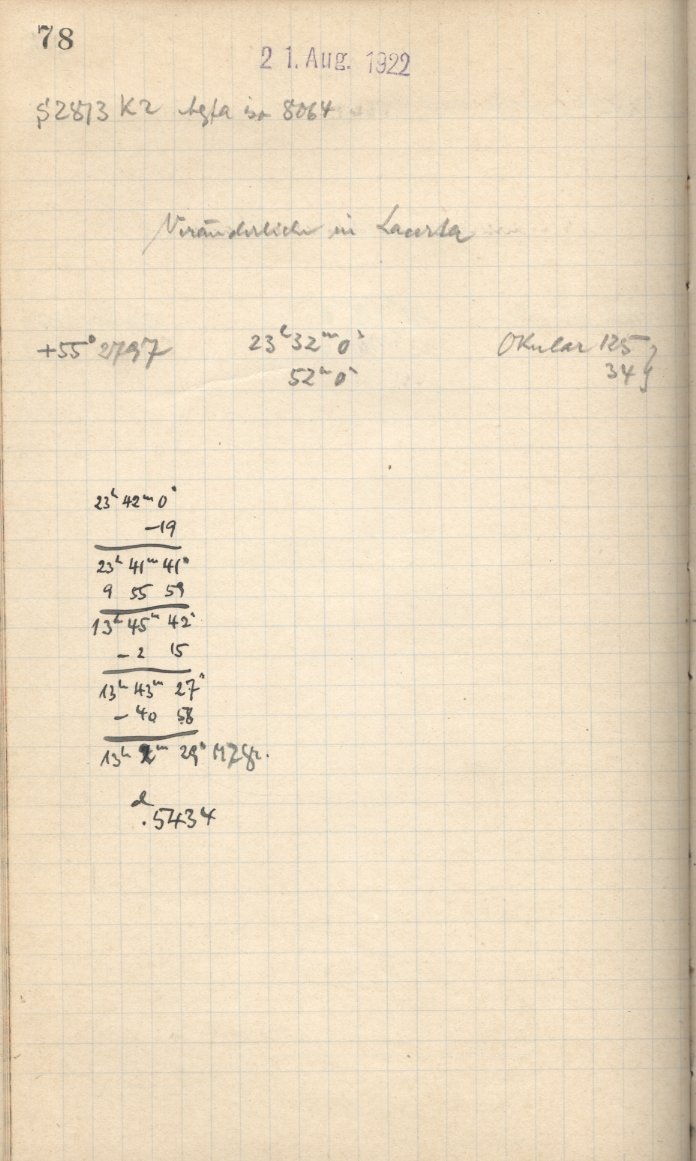 78
21. Aug. 1922
S2813 K2 Agfa iso 8064
Veränderliche in Lacerta
+55° 2797 23ʰ32ᵐ0ˢ Okular 125
52ᵐ0ˢ 34
23ʰ 42ᵐ 0ˢ
—19
23ʰ 41ᵐ 41ˢ
9 55 59
13ʰ 45ᵐ 42ˢ
— 2 15
13ʰ 43ᵐ 27ˢ
— 40 58
13ʰ 2ᵐ 29ˢ MZGr.
ᵈ.5434